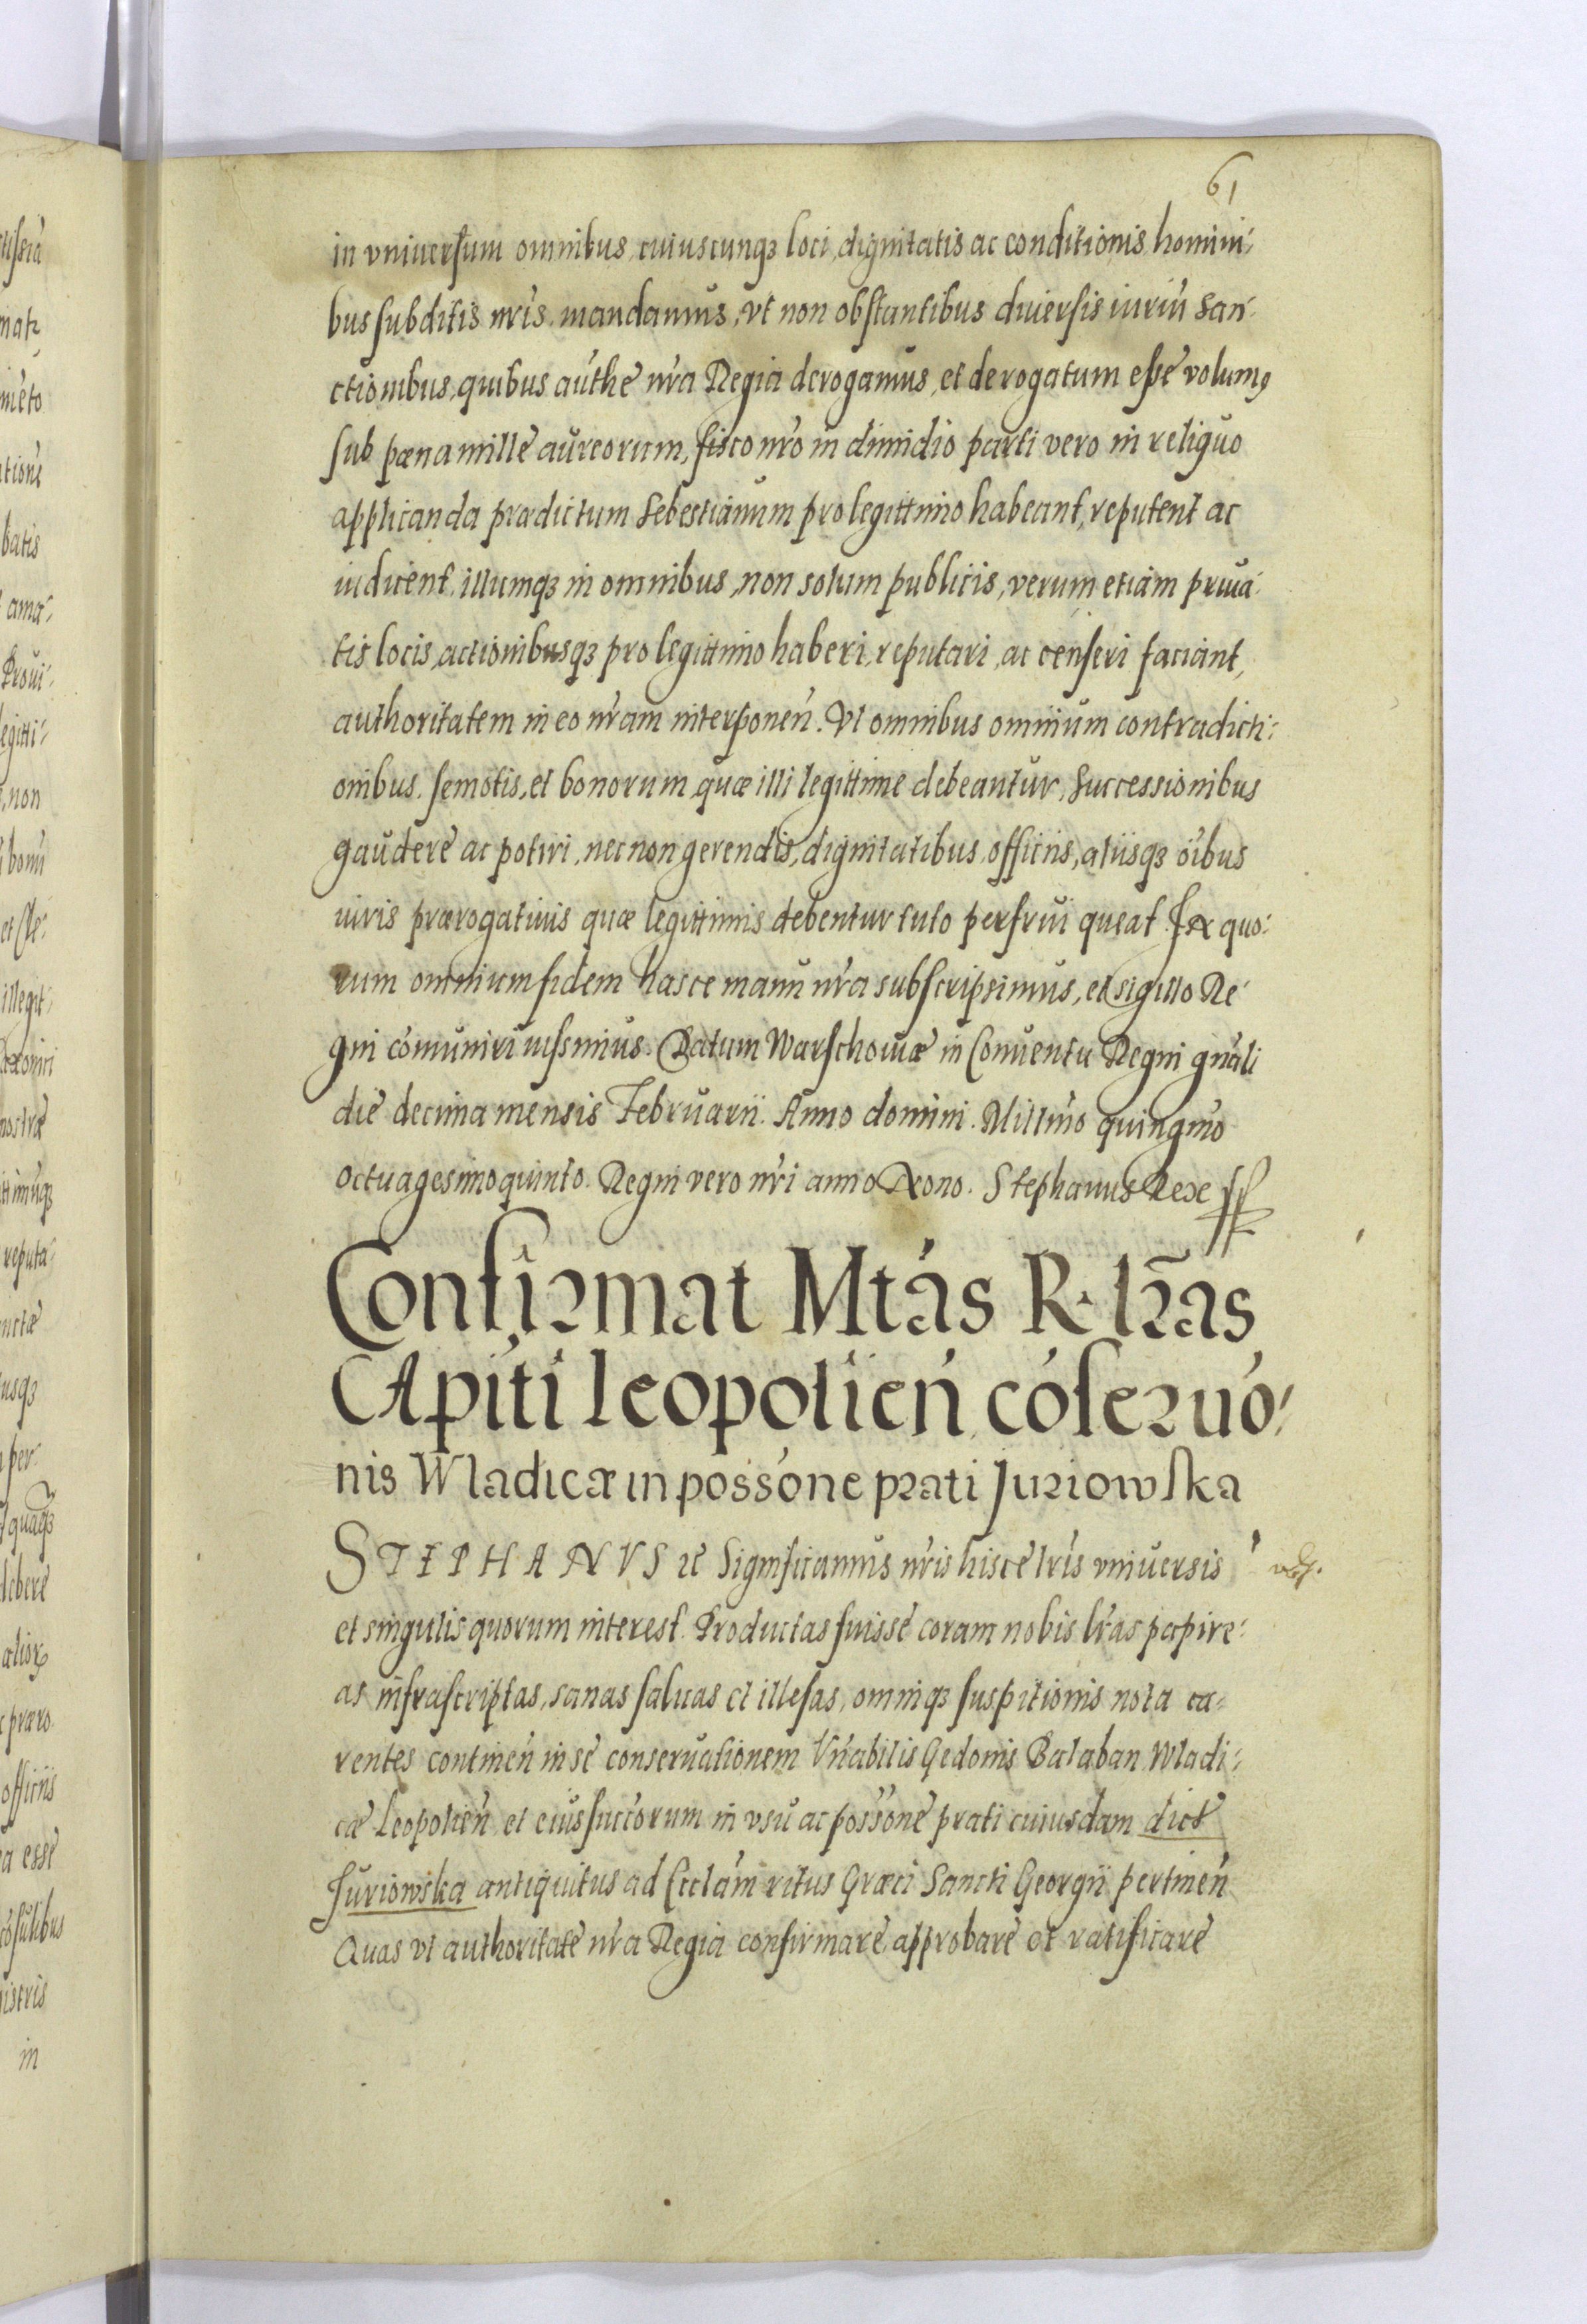 61
in vniuersum omnibus, cuiuscunqȝ loci, dignitatis ac conditionis homini-
bus subditis nris. mandamus, vt non obstantibus diuersis iuriū san-
ctionibus, quibus authe nra Regia derogamus, et derogatum esse volumꝰ
sub pœna mille aureorum, fisco nro in dimidio parti vero in reliquo
applicanda prædictum Sebestianum pro legittimo habeant, reputent ac
iudicent, illumqȝ in omnibus, non solum publicis, verum etiam priua-
tis locis, actionibusqȝ pro legittimo haberi, reputari, ac censeri faciant,
authoritatem in eo nram interponen. Vt omnibus omnium contradicti-
onibus. semotis, et bonorum quæ illi legittime debeantur, Successionibus
gaudere ac potiri, nec non gerendis, dignitatibus, officiis, aliisqȝ oibus
iuris prærogatiuis quæ legittimis debentur tuto perfrui queat. In quo-
rum omnium fidem hasce manu nra subscripsimus, et sigillo Re-
gni comuniri iussimus. Datum Warschouiæ in Conuentu Regni gnali
die decima mensis Februarii. Anno domini. Millmo quingmo
octuagesimo quinto. Regni vero nri anno Nono. Stephanus Rex
Confirmat Mtas R. lras
CApiti leopolien coseruo-
nis Wladicæ in possone prati Juriowska
STEPHANVS ꝛc Significamus nris hisce lris vniuersis
et singulis quorum interest. Productas fuisse coram nobis lras papire-
as infrascriptas, sanas saluas et illesas, omniqȝ suspitionis nota ca-
rentes continen in se conseruationem Vnabilis Gedonis Balaban Wladi-
cæ Leopolien et eius succorum in vsu ac possone prati cuiusdam dict
Juriowska antiquitus ad Ecclam ritus Græci Sancti Georgii pertinen
Quas vt authoritate nra Regia confirmare, approbare et ratificare